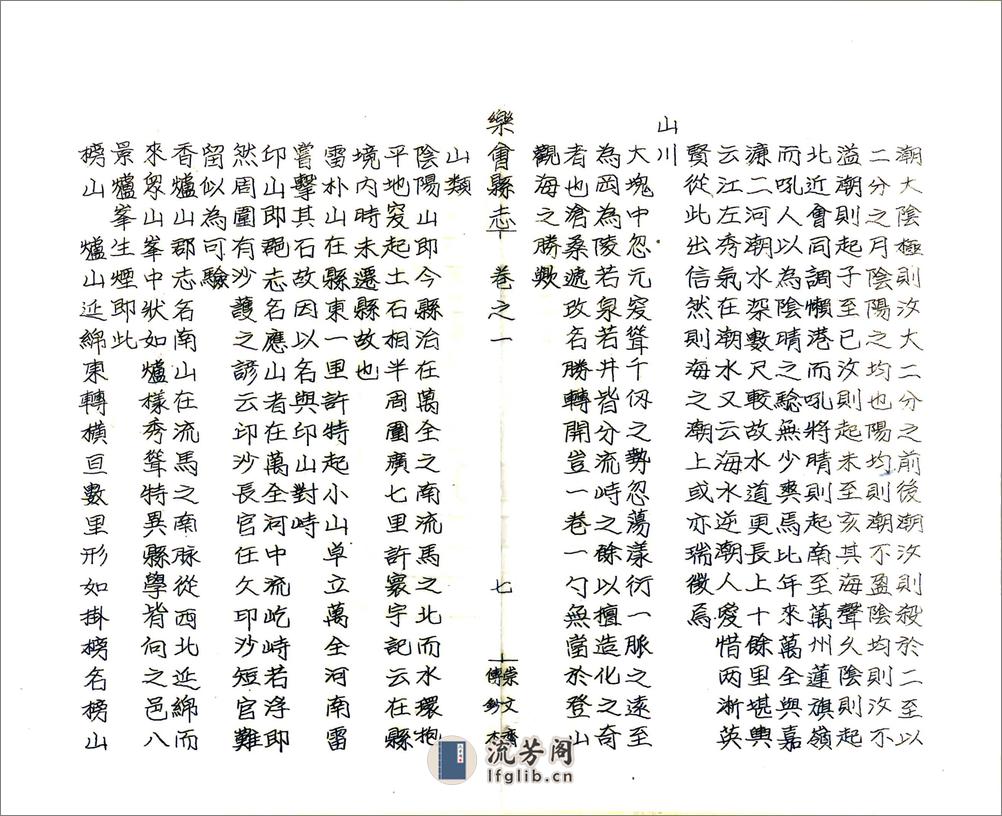 潮大陰極則汐大二分之前後潮汐則殺於二至以
二分之月陰陽之均也陽均則潮不盈陰均則汐不
溢潮則起子至巳汐則起未至亥其海聲久陰則起
北近會同調懶港而吼將晴則起南至萬州蓮旗嶺
而吼人以為陰晴之驗無少爽焉比年來萬全與嘉
濂二河潮水深數尺較故水道更長上十餘里堪輿
云江左秀氣在潮水又云海水逆潮人愛惜兩浙英
賢從此出信然則海之潮上或亦瑞徵焉
山川
大塊中忽元突聳千仞之勢忽蕩漾衍一脈之遠至
為岡為陵若泉若井皆分流峙之餘以擅造化之奇
者也滄桑遞改名勝轉開豈一卷一勺無當於登山
觀海之勝歟
樂會縣志 卷之一 七 崇文齋傳鈔本
山類
陰陽山即今縣治在萬全之南流馬之北而水環抱
平地突起土石相半周圍廣七里許寰宇記云在縣
境內時未遷縣故也
雷朴山在縣東一里許特起小山单立萬全河南雷
嘗擊其石故因以名與印山對峙
印山即郡志名應山者在萬全河中流屹峙若浮即
然周圍有沙護之諺云印沙長官任久印沙短官難
留似為可驗
香爐山郡志名南山在流馬之南脉從西北延綿而
來衆山峯中狀如爐樣秀聳特異縣學皆向之邑八
景爐峯生煙即此
榜山 爐山延綿東轉橫亘數里形如掛榜名榜山
流芳阁
lfglib.cn